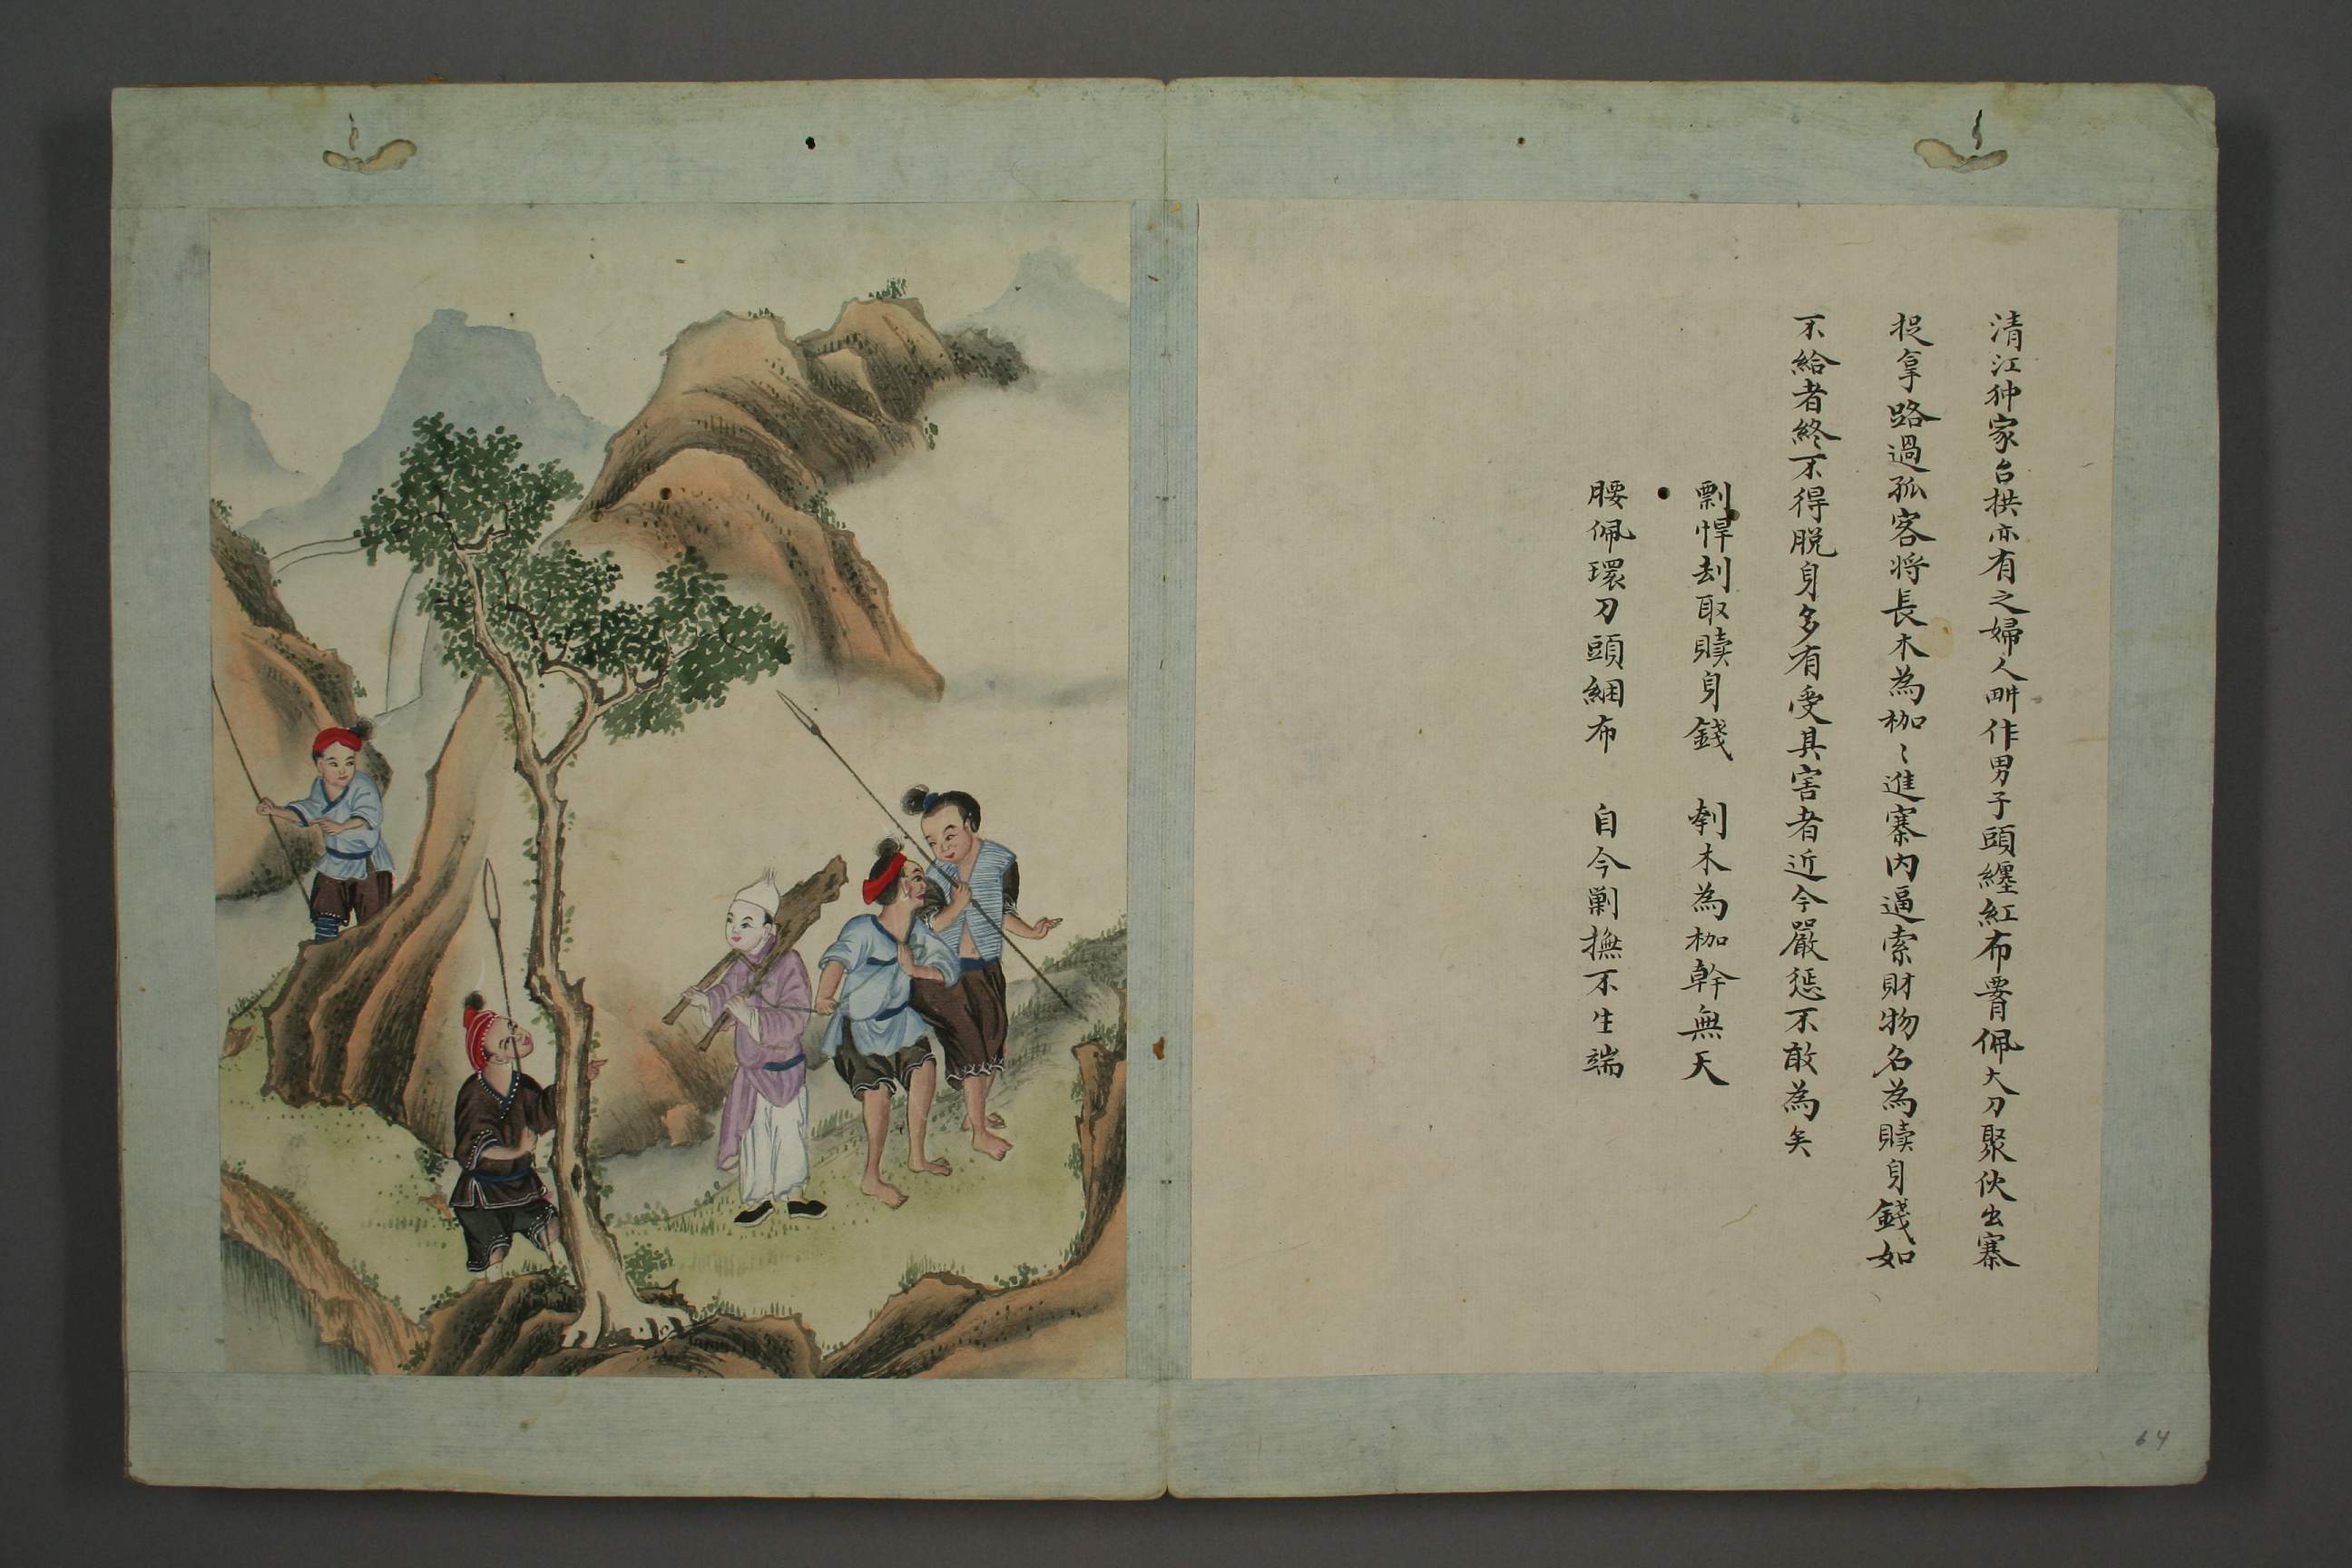 清江狆家台拱亦有之婦人畊作男子頭纏紅布腰佩大刀聚伙出寨
捉拿路過孤客将長木為枷〻進寨内逼索財物名為贖身錢如
不給者終不得脱身多有受其害者近今嚴惩不敢為矣
剽悍刦取贖身錢　刳木為枷幹無天
腰佩環刀頭綑布　自今剿撫不生端
64